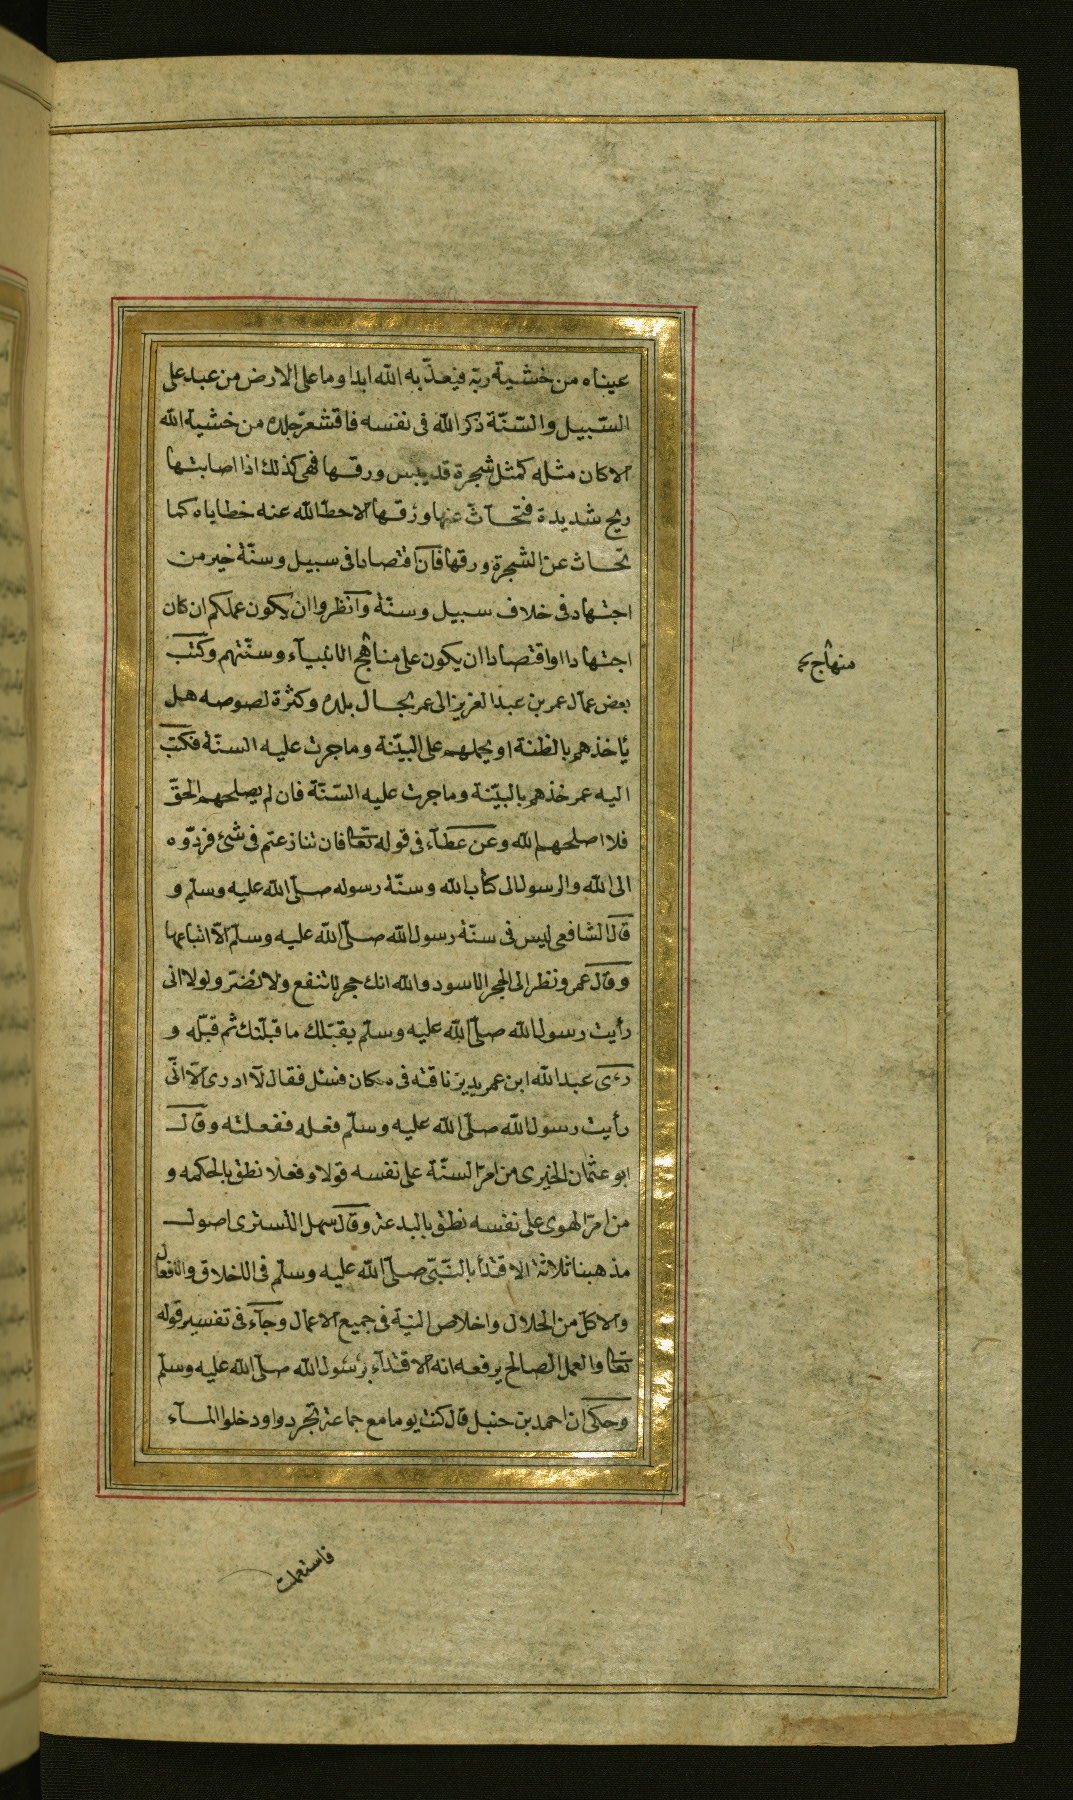 عيناه من خشية ربّه فيعذّبه الله ابدا وما على الارض من عبد على
السّبيل والسّنّة ذكر الله فى نفسه فاقشعرّ جلده من خشية الله
الا كان مثله كمثل شجرة قد يبس ورقها فهى كذلك اذا اصابتها
ريح شديدة فتحاتّ عنها ورقها الا حطّ الله عنه خطاياه كما
تحاتّ عن الشجرة ورقها فان اقتصادا فى سبيل وسنّة خير من
اجتهاد فى خلاف سبيل وسنّة وانظروا ان يكون عملكم ان كان
اجتهادا او اقتصادا ان يكون على مناهج الانبيآء وسنّتهم وكتب
بعض عمال عمر بن عبد العزيز الى عمر بحال بلده وكثرة لصوصه هل
ياخذهم بالظنة او يحملهم على البيّنة وما جرت عليه السنّة فكتب
اليه عمر خذهم بالبيّنة وما جرت عليه السّنّة فان لم يصلحهم الحقّ
فلا اصلحهم الله وعن عطآء فى قوله تعا فان تنازعتم فى شئ فردّوه
الى الله والرسول الى كتاب الله وسنّة رسوله صلّى الله عليه وسلّم و
قال الشافعى ليس فى سنّة رسول الله صلّى الله عليه وسلّم الّا اتباعها
وقال عمر ونظر الى الحجر الاسود والله انك حجر لا تنفع ولا تضر ولولا انى
رأيت رسول الله صلّى الله عليه وسلّم يقبّلك ما قبّلتك ثم قبّله و
رءى عبد الله ابن عمر يدير ناقته فى مكان فسئل فقال لا ادرى الّا انّى
رأيت رسول الله صلّى الله عليه وسلّم فعله ففعلته وقال
ابو عثمان الحيرى من امرّ السنّة على نفسه قولا وفعلا نطق بالحكمه و
من امرّ الهوى على نفسه نطق بالبدعة وقال سهل التسترى اصول
مذهبنا ثلاثة الاقتدأ بالنّبىّ صلّى الله عليه وسلّم فى الاخلاق والافعال
والاكل من الحلال واخلاص النية فى جميع الاعمال وجآء فى تفسير قوله
تعا والعمل الصالح يرفعه انه الاقتدآء برسول الله صلّى الله عليه وسلّم
وحكى ان احمد بن حنبل قال كنت يوما مع جماعة تجردوا ودخلوا المآء
منهاج
فاستعملت